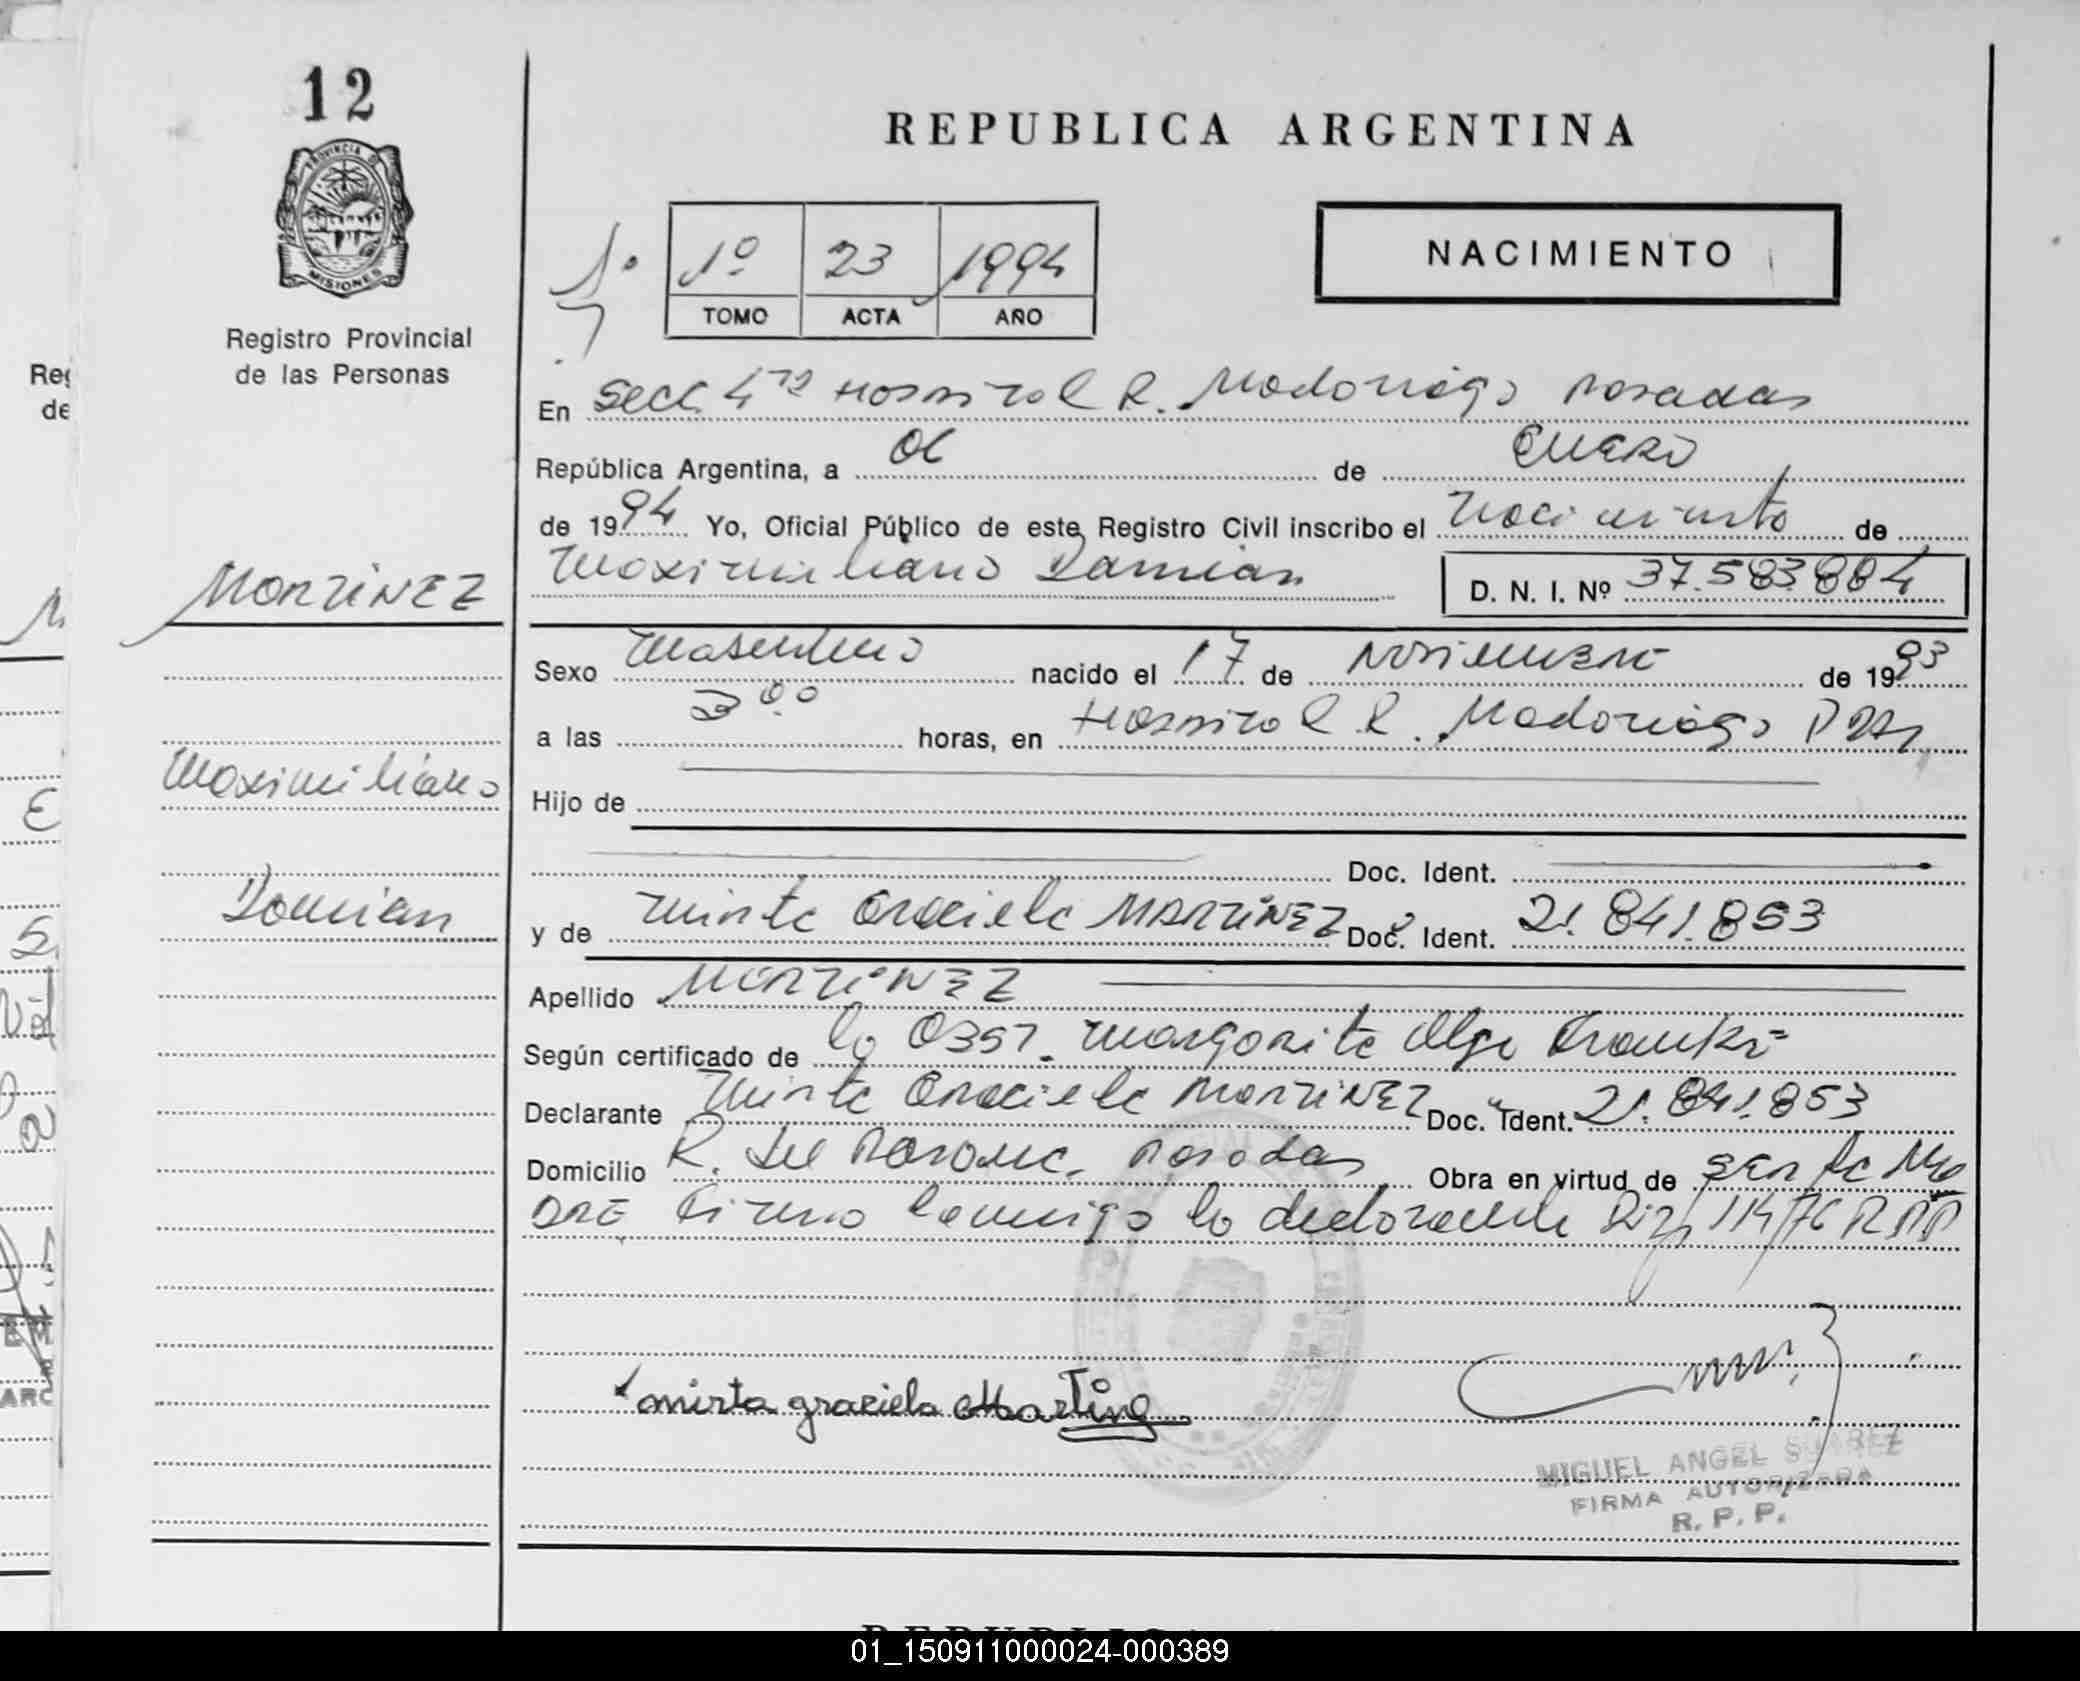 12
PROVINCIA DE
MISIONES
Registro Provincial
de las Personas
REPUBLICA ARGENTINA
1º
1º 23 1994
TOMO ACTA AÑO
NACIMIENTO
En Secc. 4ta Hospital R. Madariaga Posadas
República Argentina, a 06 de Enero
de 1994 Yo, Oficial Público de este Registro Civil inscribo el Nacimiento de
Maximiliano Damian D. N. I. Nº 37.583.884
MARTINEZ
Sexo Masculino nacido el 17 de Noviembre de 1993
a las 3:00 horas, en Hospital R. Madariaga Pdas
Maximiliano
Hijo de
Doc. Ident.
Damian
y de Mirta Graciela MARTINEZ Doc. Ident. 21.841.853
Apellido MARTINEZ
Según certificado de la Obst. Margarita Olga
Declarante Mirta Graciela MARTINEZ Doc. Ident. 21.841.853
Domicilio R. del Parana. Posadas Obra en virtud de ser la Ma
dre Firma conmigo la declarante 114/76 RPP
mirta graciela Martine
MIGUEL ANGEL SUAREZ
FIRMA AUTORIZADA
R. P. P.
01_150911000024-000389